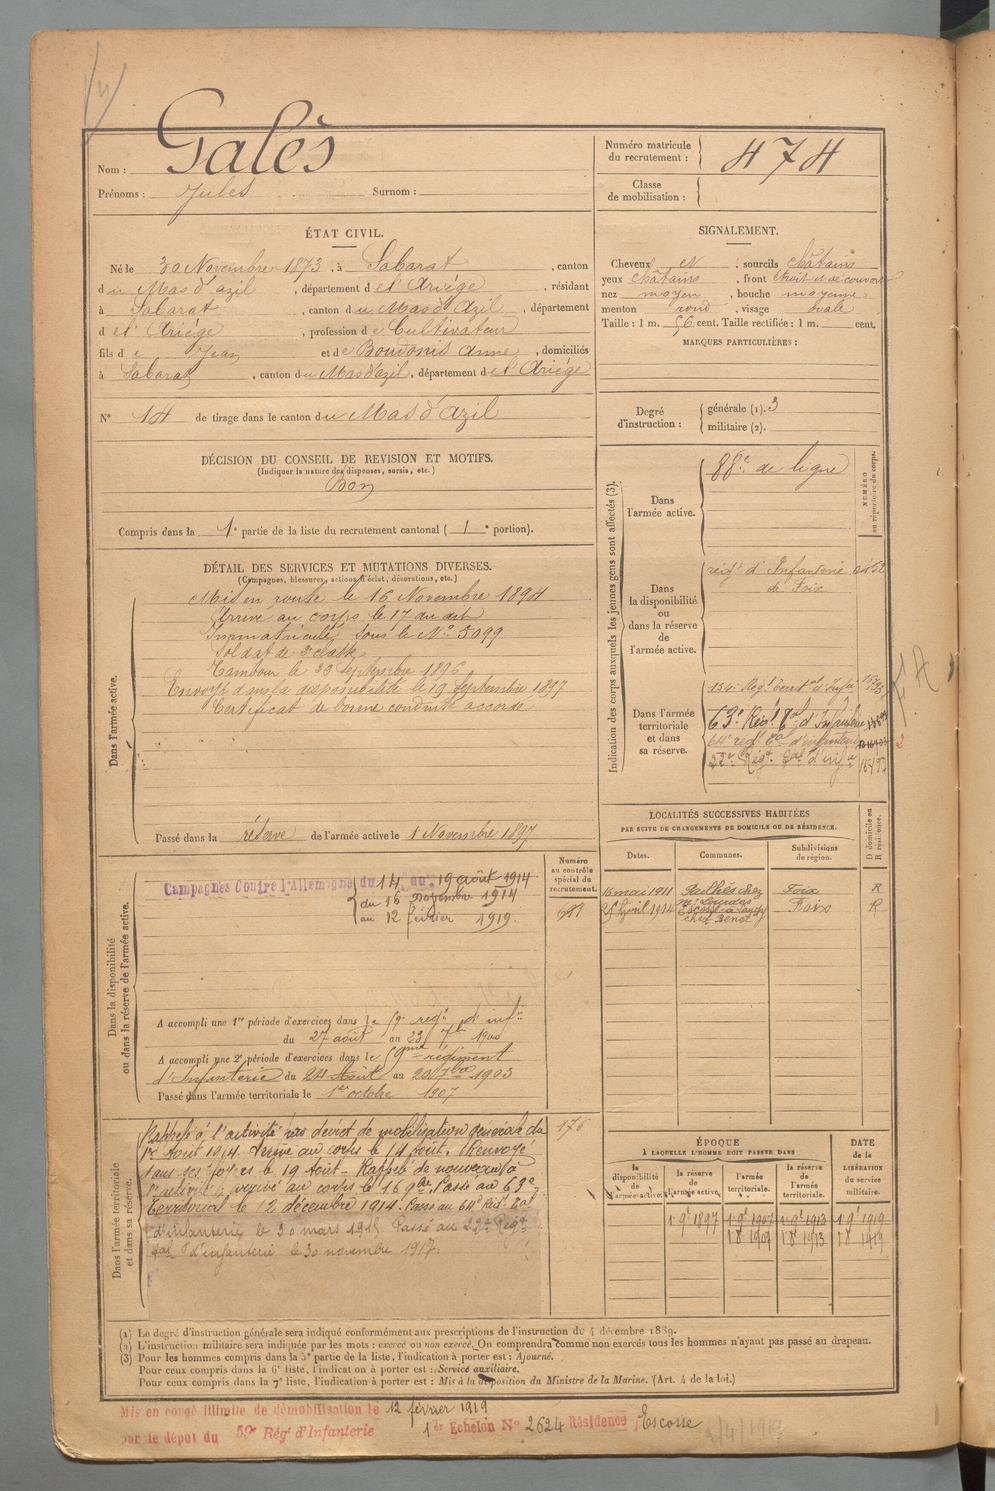 Nom : Galès
Prénoms : Jules Surnom :
Numéro matricule du recrutement : 474
Classe de mobilisation :
ÉTAT CIVIL.
Né le 30 Novembre 1873, à Sabarat, canton
du Mas d'azil, département de l'Ariège, résidant
à Sabarat, canton du Mas d'Azil, département
de l'Ariège, profession de Cultivateur
fils de Jean et de Boudonis Anne, domiciliés
à Sabarat, canton du Mas d'azil, département de l'Ariège
N° 14 de tirage dans le canton du Mas d'Azil
SIGNALEMENT.
Cheveux N, sourcils châtains
yeux châtains, front étroit et
nez moyen, bouche moyenne
menton rond, visage ovale
Taille : 1 m. 56 cent. Taille rectifiée : 1 m. cent.
MARQUES PARTICULIÈRES :
Degré d'instruction : générale (1). 3
militaire (2).
DÉCISION DU CONSEIL DE REVISION ET MOTIFS.
(Indiquer la nature des dispenses, sursis, etc.)
Bon
Compris dans la 1e partie de la liste du recrutement cantonal ( 1e portion).
DÉTAIL DES SERVICES ET MUTATIONS DIVERSES.
(Campagnes, blessures, actions d'éclat, décorations, etc.)
Dans l'armée active.
Mis en route le 16 Novembre 1894
Arrivé au corps le 17 du dit
Immatriculé sous le N° 5099
Soldat de 2e classe
Tambour le Septembre 1896
Envoyé dans la disponibilité le 19 Septembre 1897
Certificat de bonne conduite accordé
Passé dans la réserve de l'armée active le 1 Novembre 1897
Indication des corps auxquels les jeunes gens sont affectés (3).
NUMÉRO au répertoire du corps.
Dans l'armée active.
88e de ligne
Dans la disponibilité ou dans la réserve de l'armée active.
régt d'Infanterie
de Foix
Dans l'armée territoriale et dans sa réserve.
134e Régt territ al d'Infie
63e Régt tal d'Infanterie
64e régt tal d'infanterie
22e Régt tal d'infie
Dans la disponibilité ou dans la réserve de l'armée active.
Numéro au contrôle spécial du recrutement.
Campagnes Contre l'Allemagne du 14 au 19 août 1914
du 16 novembre 1914
au 12 février 1919.
A accompli une 1re période d'exercices dans le 59e régt d'infie
du 27 août au 23 7bre 1900
A accompli une 2e période d'exercices dans le 59me régiment
d'Infanterie du 24 Août au 20 7bre 1903
Passé dans l'armée territoriale le 1er octobre 1907
LOCALITÉS SUCCESSIVES HABITÉES
PAR SUITE DE CHANGEMENTS DE DOMICILE OU DE RÉSIDENCE.
D domicile ou R résidence.
Dates. Communes. Subdivisions de région.
16 mai 1911 Pailhès chez Mr Lourdas Foix R
25 Avril 1914 Escosse Foix R
Dans l'armée territoriale et dans sa réserve.
176
Rappelé à l'activité par décret de mobilisation générale du
1er Août 1914. Arrivé au corps le 14 Août. Renvoyé
dans ses foyers le 19 Août. Rappelé de nouveau à
l'activité, arrivé au corps le 16 9bre. Passé au 63e
territorial le 12 décembre 1914. Passé au 64e Régt tal
d'infanterie le 30 mars 1915. Passé au 22e Régt
tal d'infanterie le 30 novembre 1917.
ÉPOQUE
À LAQUELLE L'HOMME DOIT PASSER DANS
DATE de la LIBÉRATION du service militaire.
la disponibilité de l'armée active. la réserve de l'armée active. l'armée territoriale. la réserve de l'armée territoriale.
1 9e 1897 1 9e 1907 1 9e 1913 1 9e 1919
1 8e 1907 1 8e 1913 1 8e 1919
(1) Le degré d'instruction générale sera indiqué conformément aux prescriptions de l'instruction du 4 décembre 1889.
(2) L'instruction militaire sera indiquée par les mots : exercé ou non exercé. On comprendra comme non exercés tous les hommes n'ayant pas passé au drapeau.
(3) Pour les hommes compris dans la 5e partie de la liste, l'indication à porter est : Ajourné.
Pour ceux compris dans la 6e liste, l'indication à porter est : Service auxiliaire.
Pour ceux compris dans la 7e liste, l'indication à porter est : Mis à la disposition du Ministre de la Marine. (Art. 4 de la loi.)
Mis en congé illimité de démobilisation le 12 février 1919
1er Echelon N° 2624 Résidence Escosse
par le dépôt du 59e Régt d'Infanterie